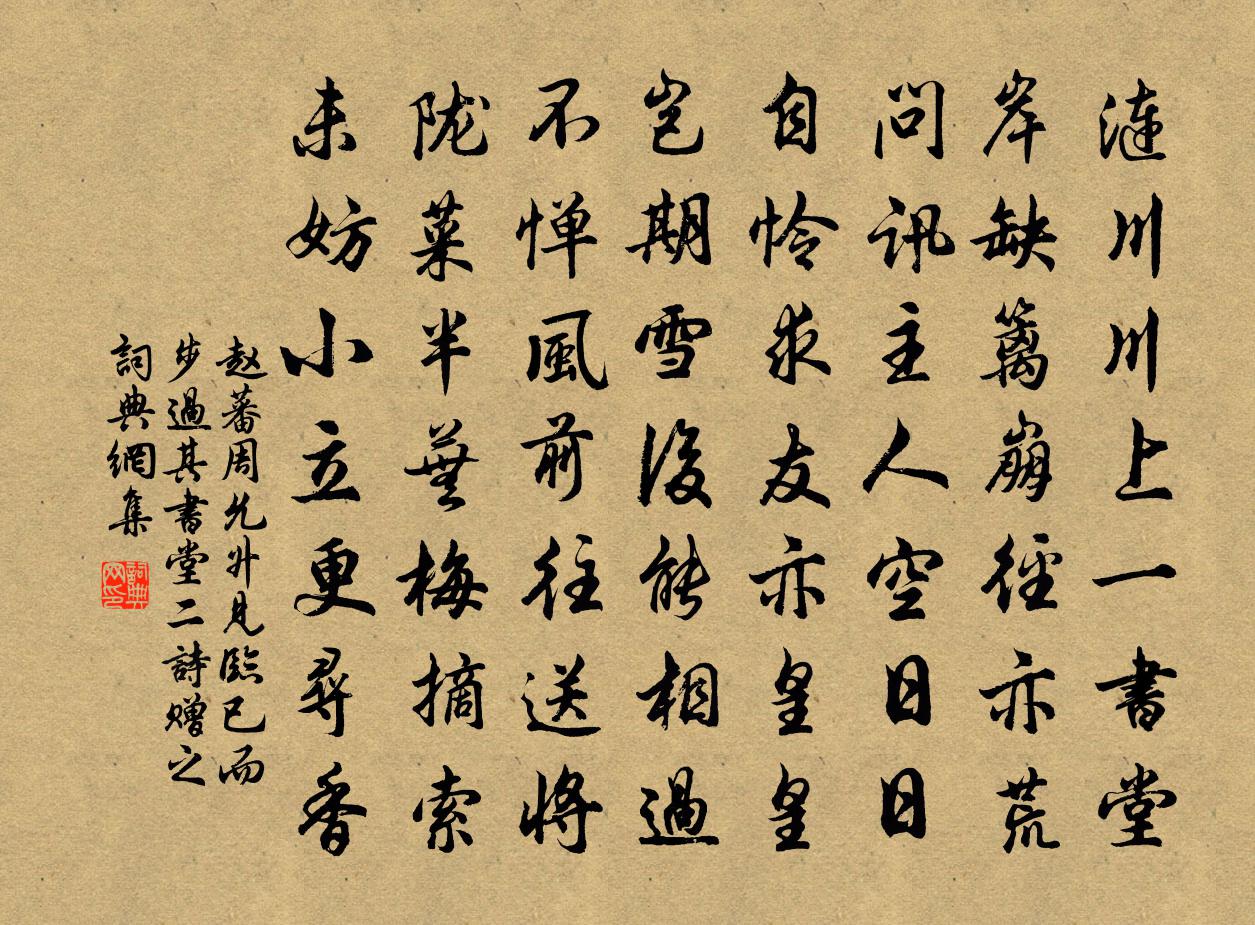 涟川川上一書堂
岸缺籬崩徑亦荒
問訊主人空日日
自怜求友亦皇皇
岂期雪後能相過
不惮風前往送將
陇菜半蕪梅摘索
未妨小立更尋香
赵蕃周允升見臨已而
步過其書堂二詩赠之
詞典網集
詞典网印